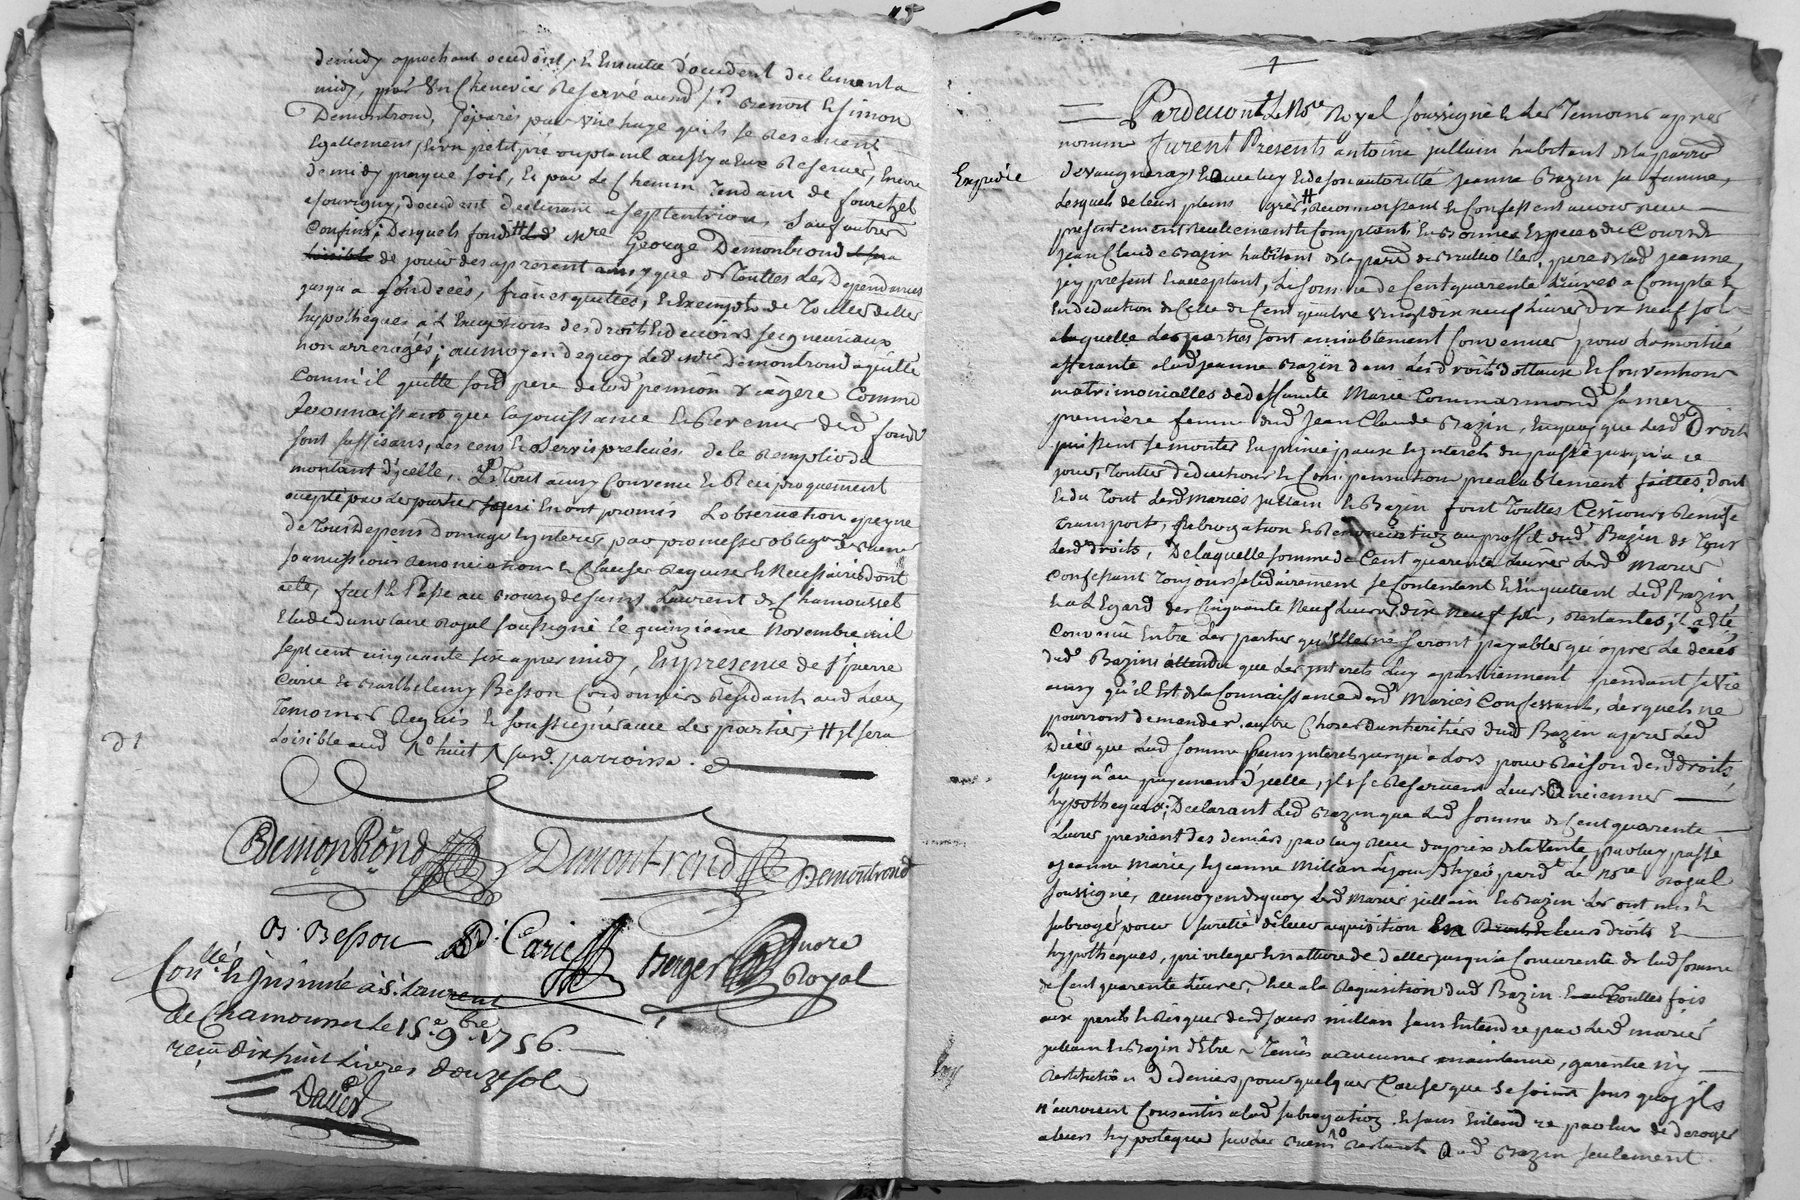 de midy approchant occident, et ensuitte d'occident declinant a
midy, par un chenevier reservé ausd. Srs Benoit et Simon
Demontrond, separés par une haye qu'ils se reservent
egallement, et un petit pré ou plana aussy a eux reservé, encore
de midy presque soir, et par le chemin tendant de Fouretzel
a Souvigny, d'occident declinant a septentrion, sauf autres
confins; desquels fonds # led. Mre George Demontrond
de jouir des apresent ainsy que de touttes les dependances
jusqu'a son deces, francs quittes, et exempts de touttes dettes
hypotheques a l'exception des droits et devoirs seigneuriaux
non arreragés; au moyen de quoy led. Mre Demontrond a quitté
comm'il quitte sond. pere de lad. pension viagere comme
reconnaissant que la jouissance et revenus desd. fonds
sont suffisans, les cens et servis prelevés de le remplir du
montant d'ycelle. Le tout ainsy convenu et reciproquement
accepté par les parties qui en ont promis l'observation a peyne
de tous depens domages interets, par promesses obligaons de biens
soumissions renonciations et clauses requises et necessaires dont
acte, fait et passé au bourg de Saint Laurent de Chamousset
etude du notaire royal soussigné le quinzieme novembre mil
sept cent cinquante six apres midy, en presence de Sr Pierre
Carie et Barthelemy Besson cordonnier residants aud. lieu
temoins requis et soussignés avec les parties, # il sera
loisible aud. / huit / susd. parroisse.
Demontrond Demont-rond Demontrond
B. Besson P. Carie Berger nore
Royal
Conlle et insinué a St. Laurent
de Chamousset le 15e 9bre 1756.
reçu dix huit livres douze sols
Dalier
Pardevant Le Nre Royal soussigné et les temoins apres
nommé furent presents antoine jullain habitant de la parroisse
Expediée
de vaugneray, et avec luy et de son autoritté jeanne Bazin sa femme,
lesquels de leurs pleins grés, # reconnoissent et confessent avoir receu
presentement reellement et comptant en bonnes especes du cours de
jean Claude Bazin habitant de la parsse de Brullioles, pere de lad. jeanne,
icy present et acceptant, la somme de cent quarente livres a compte et
en deduction de celle de cent quatre vingt dix neuf livres dix neuf sols
a laquelle les parties sont amiablement convenues, pour la moitié
afferante a lad. jeanne Bazin dans les droits dottaux et conventions
matrimonialles de deffunte Marie Commarmond sa mere
premiere femme dud. jean Claude Bazin, en quoy que lesd. droits
puissent se monter en principaux et interets du passé jusqu'a ce
jour, touttes deductions et compensations prealablement faittes, dont
et du tout lesd. mariés jullain et Bazin font touttes cessions, remise
transports, subrogation et renonciation au proffit dud. Bazin de tous
lesd. droits, de laquelle somme de cent quarente livres lesd. mariés
confessant toujours solidairement se contentent et en quittent led. Bazin
et a l'egard des cinquante neuf livres dix neuf sols, restantes, il a été
convenu entre les parties qu'elles ne seront payables qu'apres le deces
dud. Bazin attendu que les interets luy appartiennent pendant sa vie
ainsy qu'il est de la connaissance desd. mariés confessant, lesquels ne
pourront demander autre chose aux heritiers dud. Bazin apres led.
deces que lad. somme sans interets jusqu'a lors pour raison desd. droits,
et jusqu'au payement d'ycelle, ils se reservent leurs anciennes
hypotheques; declarant led. Bazin que lad. somme de cent quarente
livres provient des deniers par luy receu du prix de la vente par luy passé
a jeanne Marie, et jeanne Millan ce jourd'huy pard. le nore royal
soussigné, au moyen de quoy lesd. mariés jullain et Bazin les ont mis et
subrogé pour sureté de leur acquisition en leurs droits et
hypotheques, privileges et nature de dette jusqu'a concurente de lad. somme
de cent quarente livres, et ce a la requisition dud. Bazin touttes fois
aux perils et risques desd. sœurs millan sans entendre par lesd. mariés
jullain et Bazin d'etre tenus a aucunes maintenue, garentie ny
restitution de deniers pour quelque cause que se soient sans quoy ils
n'auroient consentis a lad. subrogation et sans entendre par eux de deroger
a leurs hypoteque sur les biens restants dud. Bazin seulement.